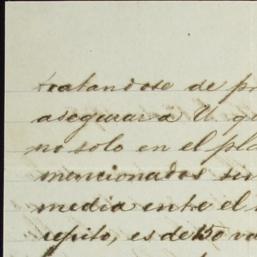 tratandose de
asegurar a U
no solo en el
mencionados
media entre el
repito, es de 150